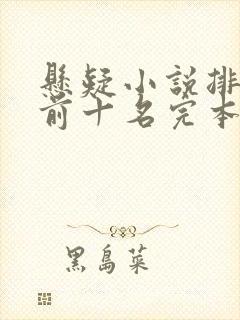 懸疑小說排
前十名完本
黑島菜